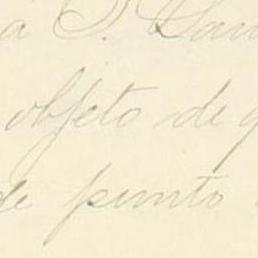 a S.
objeto de
de punto